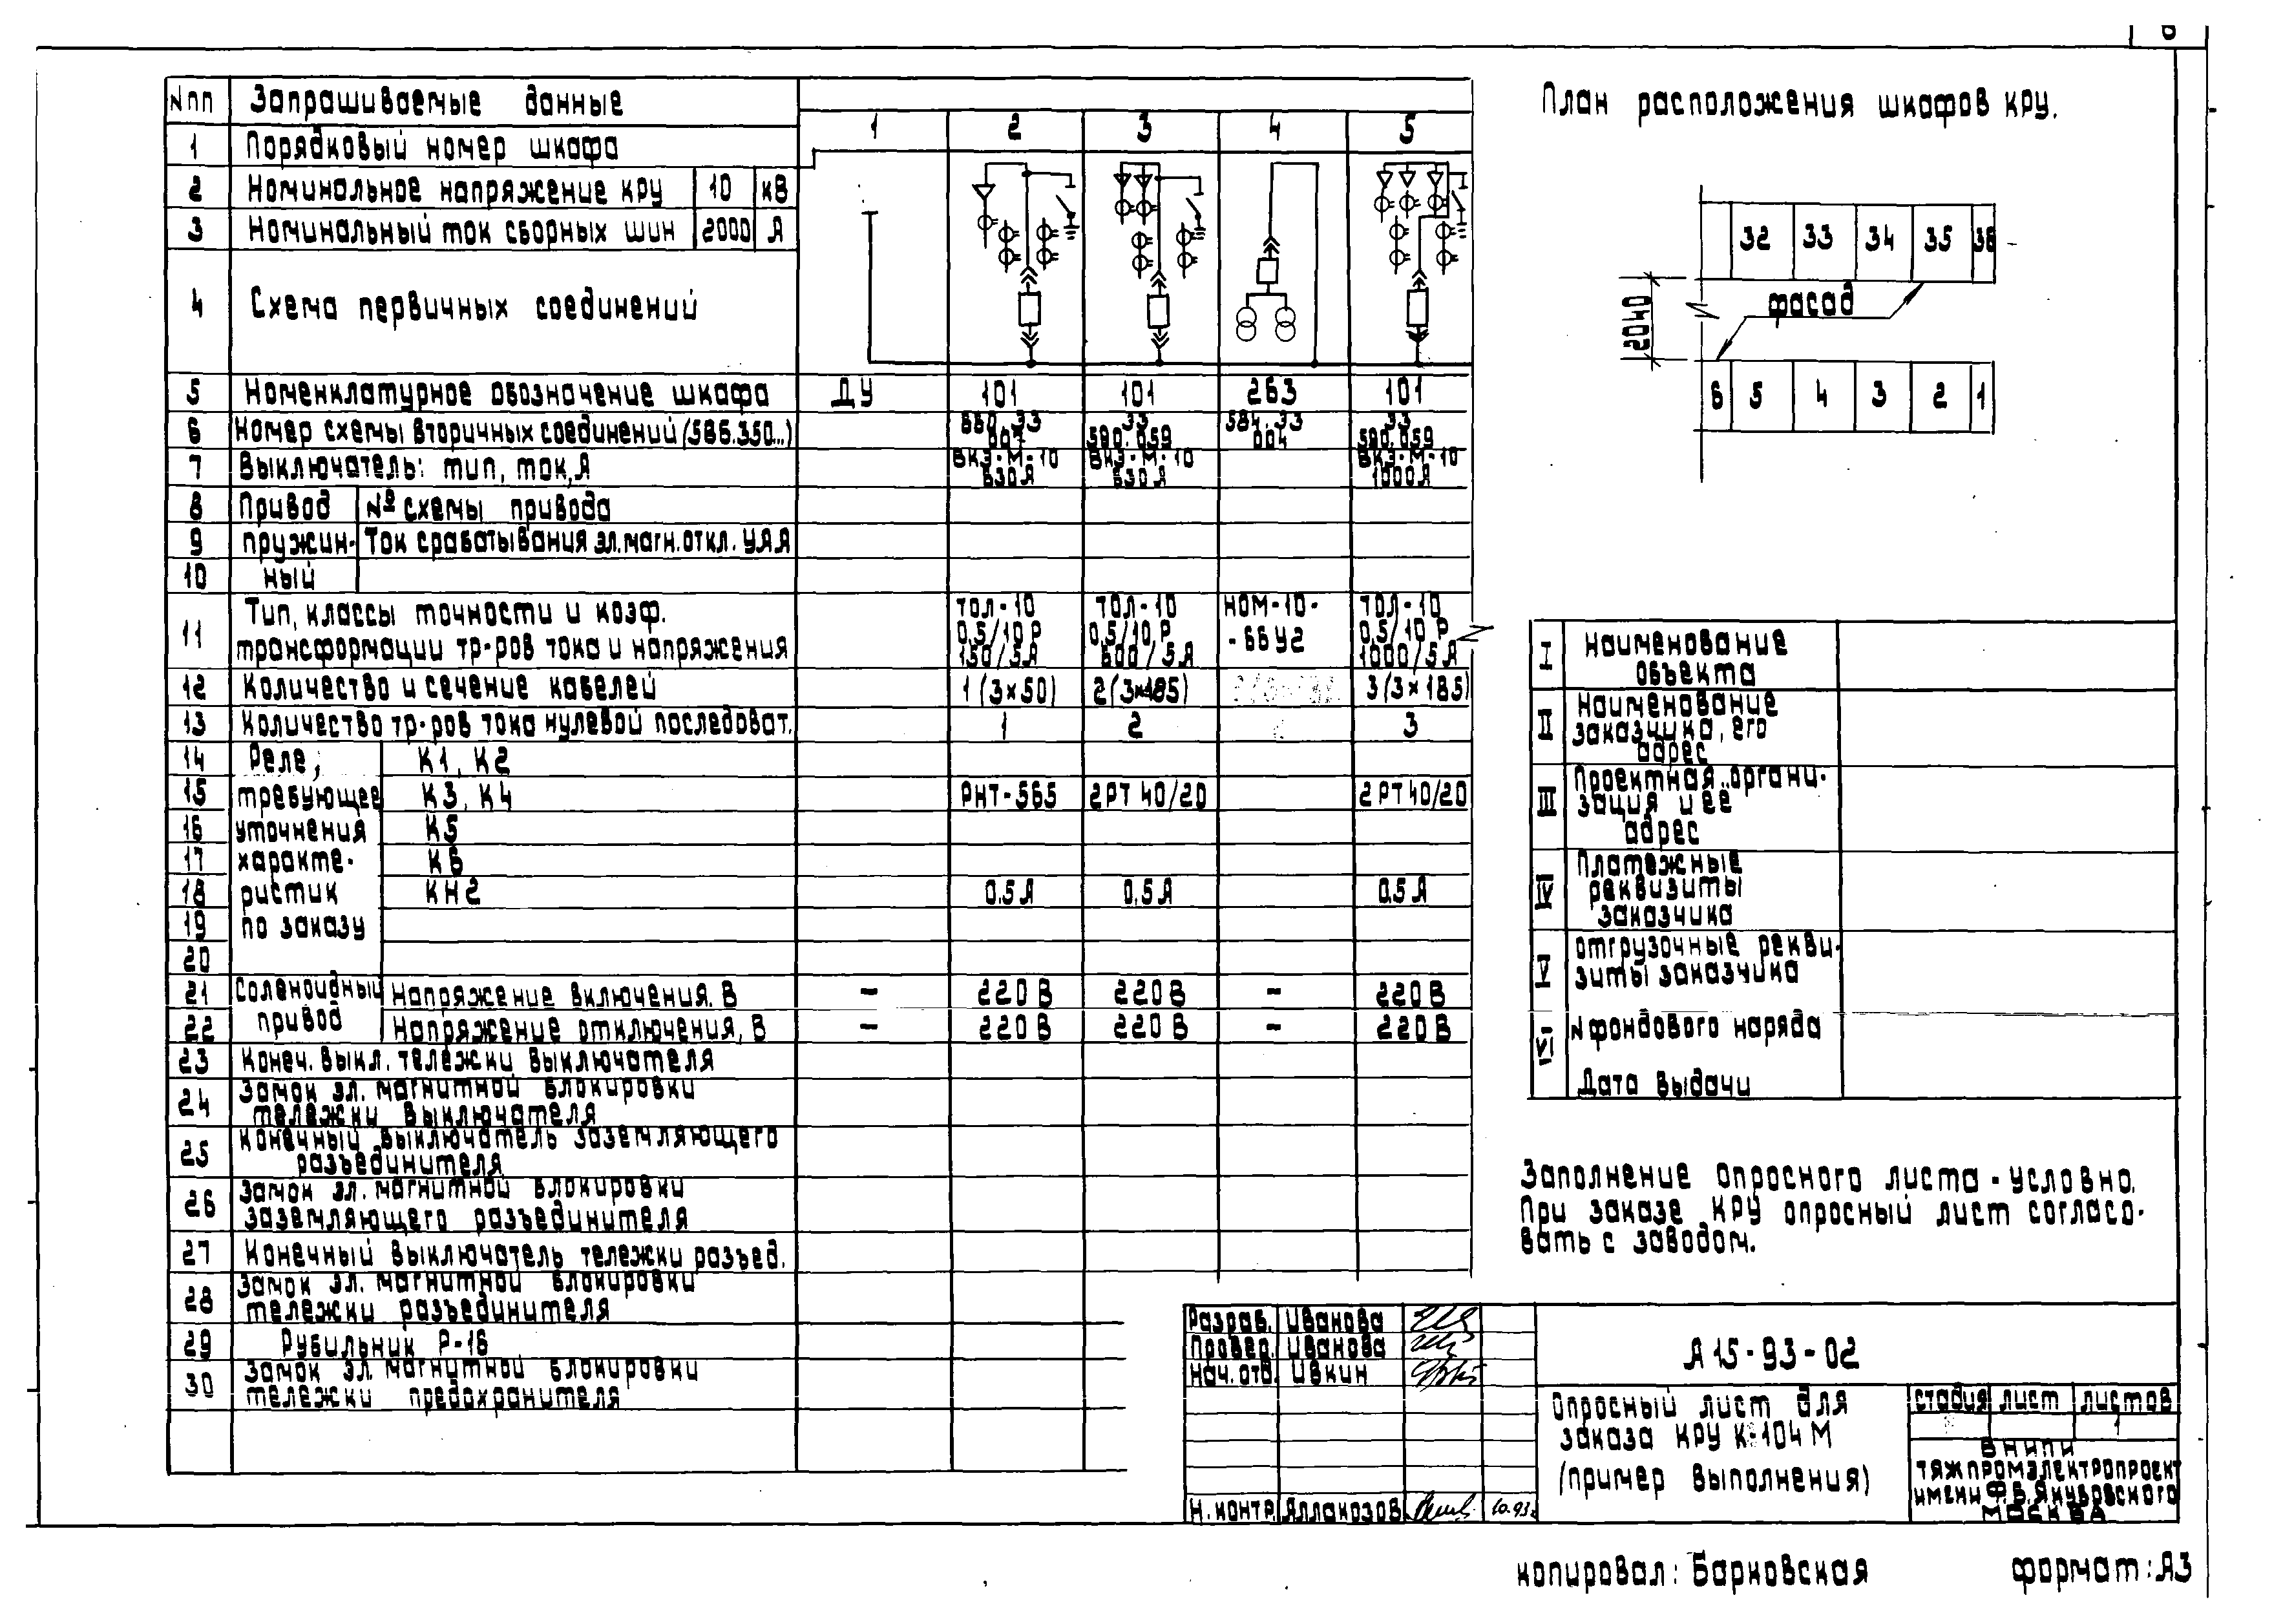 6
Nпп Запрашиваемые данные
1 Порядковый номер шкафа 1 2 3 4 5
2 Номинальное напряжение КРУ 10 кВ
3 Номинальный ток сборных шин 2000 А
4 Схема первичных соединений
5 Номенклатурное обозначение шкафа ДУ 101 101 263 101
6 Номер схемы вторичных соединений (586.350...) 33 590.059 584.33 004 33 590.059
7 Выключатель: тип, ток, А ВКЭ-М-10 630А ВКЭ-М-10 630А ВКЭ-М-10 1000А
8 Привод №схемы привода
9 пружин- Ток срабатывания эл.магн.откл. УАА
10 ный
11 Тип, классы точности и коэф.
трансформации тр-ров тока и напряжения
ТОЛ-10 ТОЛ-10 НОМ-10- ТОЛ-10
0,5/10Р 0,5/10Р -66У2 0,5/10Р
150/5А 600/5А 1000/5А
12 Количество и сечение кабелей 1(3×50) 2(3×185) 3(3×185)
13 Количество тр-ров тока нулевой последоват. 1 2 3
14 Реле, К1, К2
15 требующее К3, К4 РНТ-565 2РТ40/20 2РТ40/20
16 уточнения К5
17 характе- К6
18 ристик КН2 0.5А 0.5А 0.5А
19 по заказу
20
21 Соленоидный Напряжение включения. В - 220В 220В - 220В
22 привод Напряжение отключения, В - 220В 220В - 220В
23 Конеч. выкл. тележки выключателя
24 Замок эл. магнитной блокировки
тележки выключателя
25 Конечный выключатель заземляющего
разъединителя
26 Замок эл. магнитной блокировки
заземляющего разъединителя
27 Конечный выключатель тележки разъед.
28 Замок эл. магнитной блокировки
тележки разъединителя
29 Рубильник Р-16
30 Замок эл. магнитной блокировки
тележки предохранителя
План расположения шкафов КРУ.
32 33 34 35 36
2040
фасад
6 5 4 3 2 1
I Наименование
объекта
II Наименование
заказчика, его
адрес
III Проектная органи-
зация и ее
адрес
IV Платежные
реквизиты
заказчика
V Отгрузочные рекви-
зиты заказчика
VI N фондового наряда
Дата выдачи
Заполнение опросного листа - условно.
При заказе КРУ опросный лист согласо-
вать с заводом.
Разраб. Иванова
Провер. Иванова
Нач.отд. Ивкин
Н.контр. Аллакозов 10.93г
А15-93-02
Опросный лист для
заказа КРУ К-104М
(пример выполнения)
стадия лист листов
1
ВНИПИ
Тяжпромэлектропроект
имени Ф.Б.Якубовского
Москва
копировал: Барковская
формат: А3